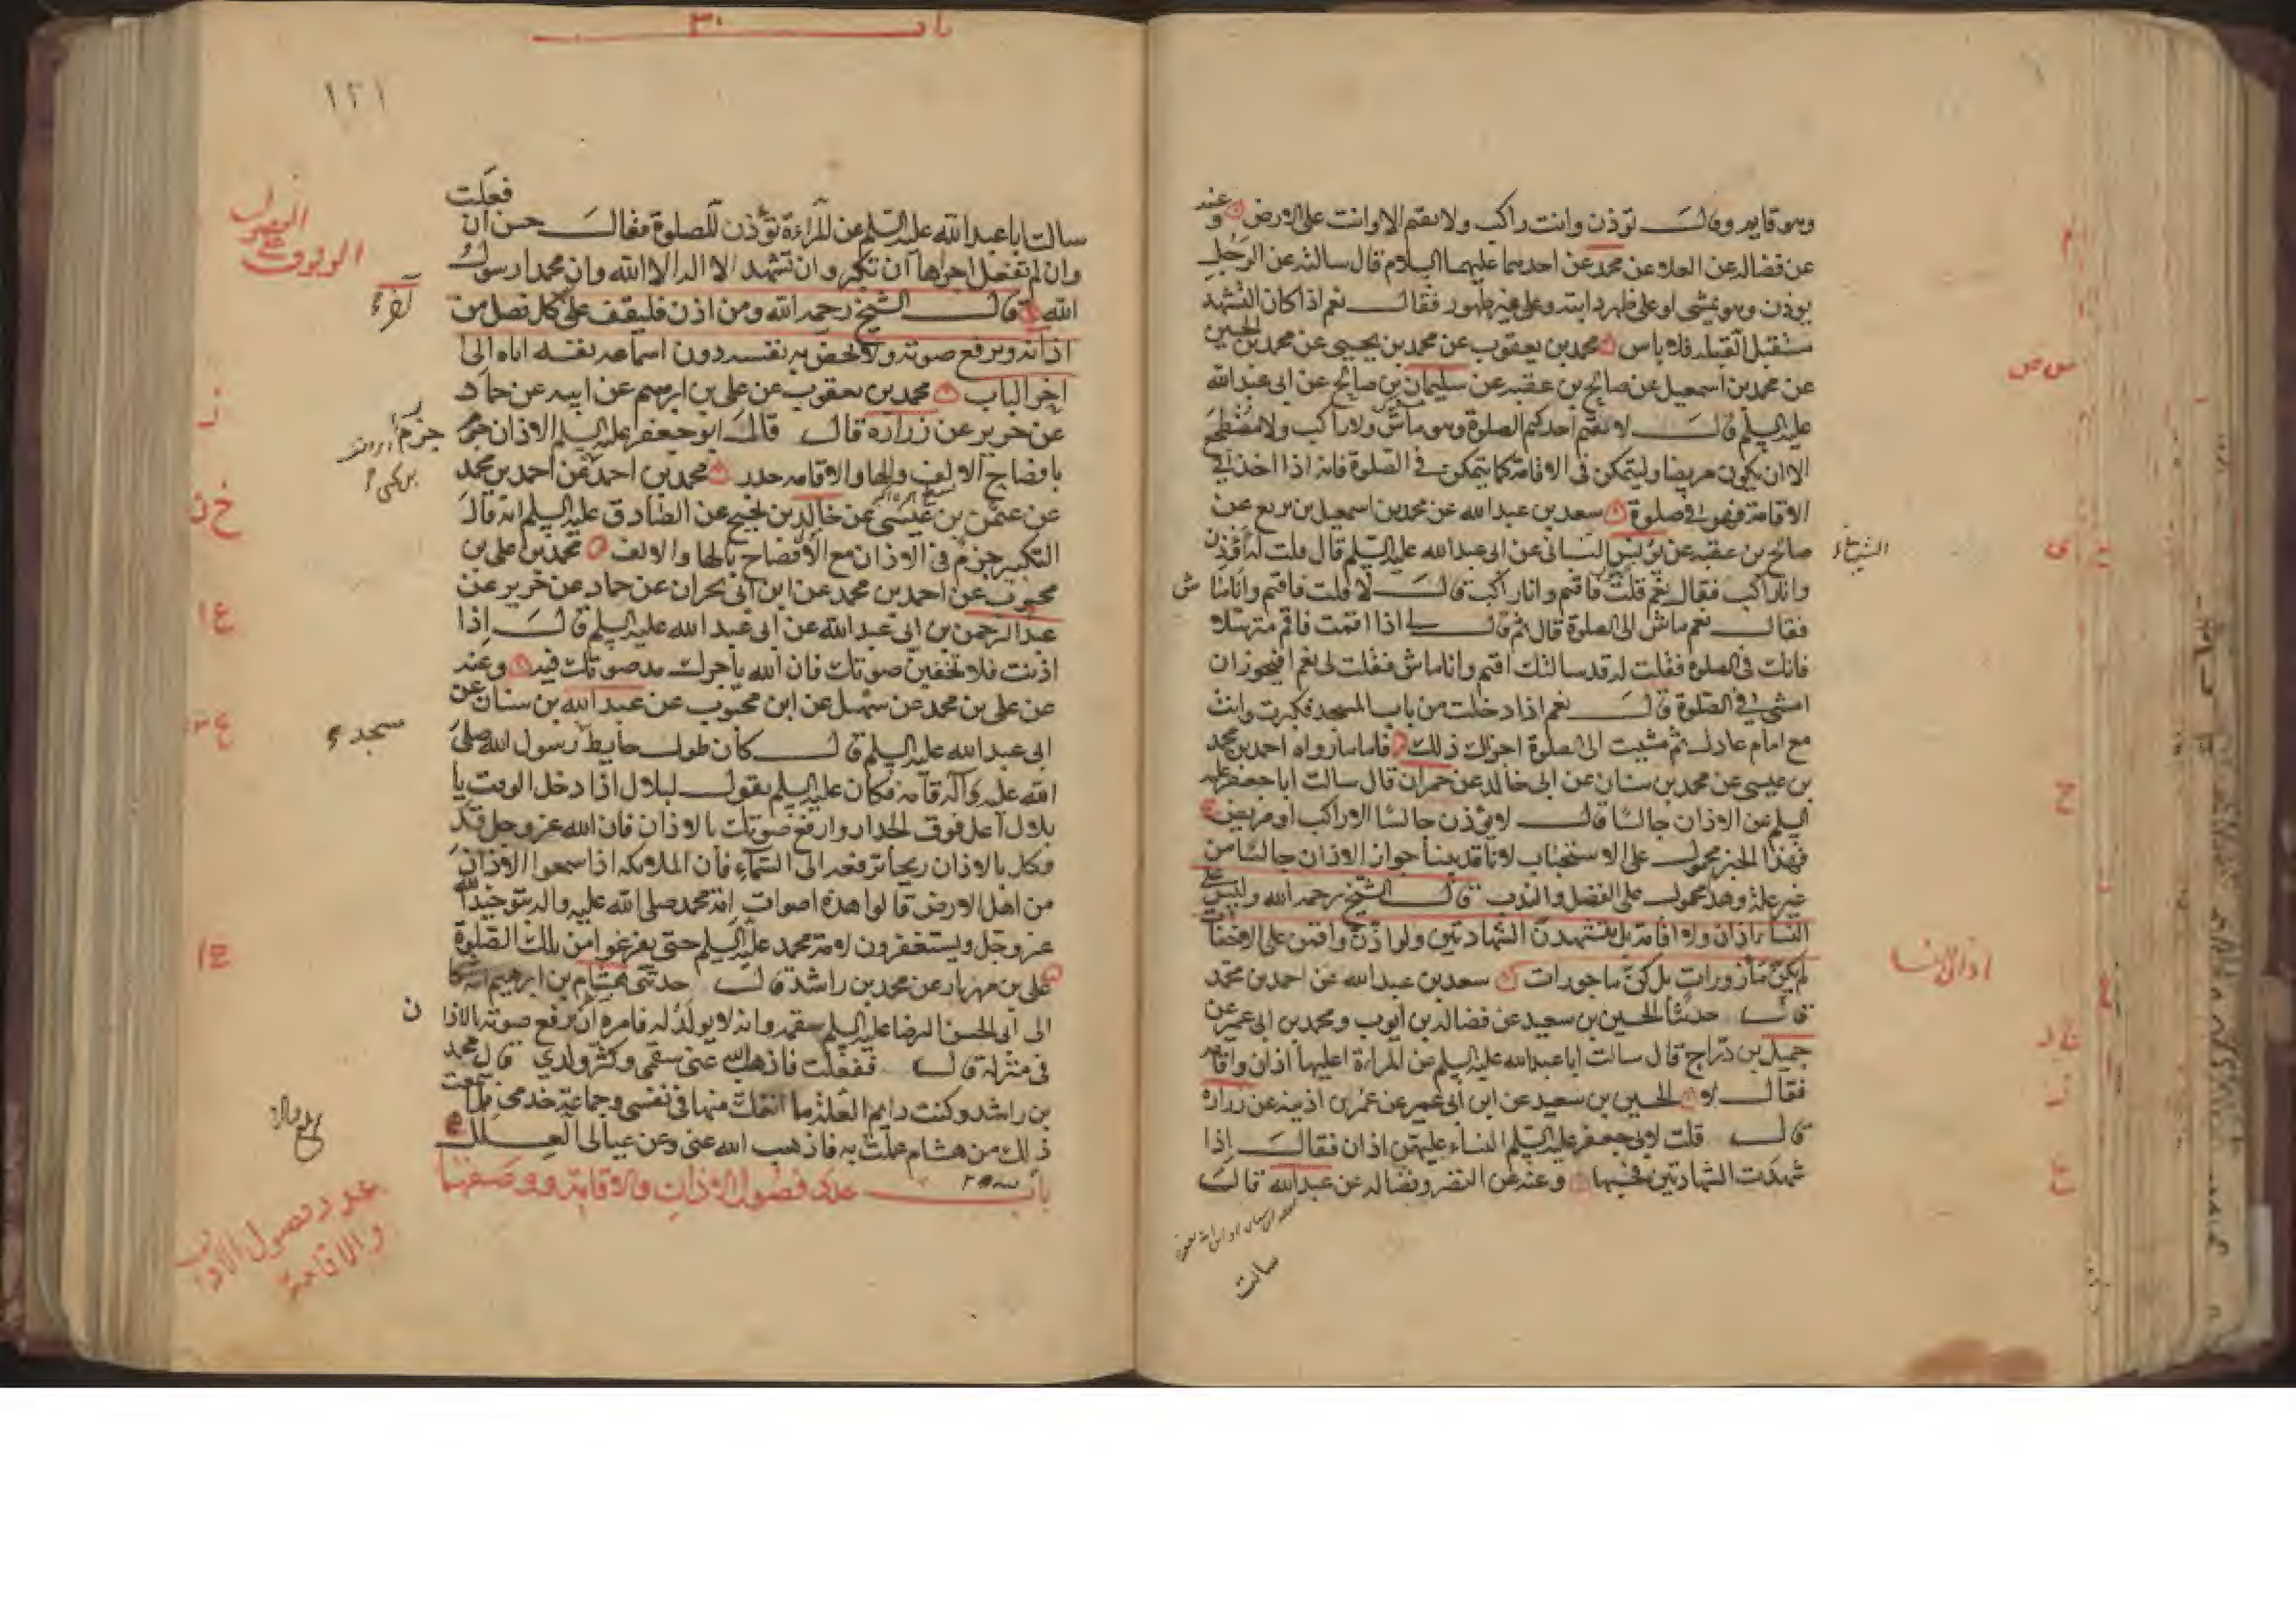 وهو قايم وقال تؤذن وانت راكب ولا تقيم الا وانت على الارض وعنه
عن فضاله عن العلا عن محمد عن احدهما عليهما السلام قال سالته عن الرجل
يوذن وهو يمشي او على ظهر دابته وعلى غير طهور فقال نعم اذا كان التشهد
مستقبل القبله فلا باس محمد بن يعقوب عن محمد بن يحيى عن محمد بن الحسين
عن محمد بن اسمعيل عن صالح بن عقبه عن سليمان بن صالح عن ابي عبد الله
عليه السلم قال لا يقيم احدكم الصلوة وهو ماش ولا راكب ولا مضطجع
الا ان يكون مريضا وليتمكن في الاقامة كما يتمكن في الصلوة فانه اذا اخذ في
الاقامة فهو في صلوة سعد بن عبد الله عن محمد بن اسمعيل بن بزيع عن
صالح بن عقبه عن يونس الشباني عن ابي عبد الله عليه السلم قال قلت له اؤذن
وانا راكب فقال نعم قلت فاقيم وانا راكب قال لا قلت فاقيم وانا ماش
فقال نعم ماش الى الصلوة قال ثم قال لي اذا اقمت فاقم مترسلا
فانك في الصلوة فقلت له قد سالتك اقيم وانا ماش فقلت لي نعم افيجوز ان
امشي في الصلوة قال نعم اذا دخلت من باب المسجد فكبرت وانت
مع امام عادل ثم مشيت الى الصلوة اجزاك ذلك فاما ما رواه احمد بن محمد
بن عيسى عن محمد بن سنان عن ابي خالد عن حمران قال سالت ابا جعفر عليه
السلم عن الاذان جالسا قال لا يؤذن جالسا الا راكب او مريض
فهذا الخبر محمول على الاستحباب لانا قد بينا جواز الاذان جالسا من
غير علة وهذا محمول على الفضل والندب قال الشيخ رحمه الله وليس على
النساء اذان ولا اقامة بل يتشهدن الشهادتين ولو اذن واقمن على الاخفات
لم يكن مأزورات بل كن ماجورات سعد بن عبد الله عن احمد بن محمد
قال حدثنا الحسين بن سعيد عن فضاله بن ايوب ومحمد بن ابي عمير عن
جميل بن دراج قال سالت ابا عبد الله عليه السلم عن المراة اعليها اذان واقامه
فقال لا الحسين بن سعيد عن ابن ابي عمير عن عمر بن اذينه عن زراره
قال قلت لابي جعفر عليه السلم النساء عليهن اذان فقال اذا
شهدت الشهادتين فحسبها وعنه عن النضر وفضاله عن عبد الله قال
سالت
باب ٣٠
١٢١
سالت ابا عبد الله عليه السلم عن المراءة تؤذن للصلوة فقال حسن ان فعلت
وان لم تفعل اجزاها ان تكبر وان تشهد ان لا اله الا الله وان محمدا رسول
الله قال الشيخ رحمه الله ومن اذن فليقف على كل فصل من
اذانه ويرفع صوته ولا يخفض به نفسه دون اسماعه نفسه اياه الى
اخر الباب محمد بن يعقوب عن علي بن ابرهيم عن ابيه عن حماد
عن حريز عن زراره قال قال ابو جعفر عليه السلم الاذان جزم
بافصاح الالف والها والاقامه حدر محمد بن احمد عن احمد بن محمد
عن عثمن بن عيسى عن خالد بن نجيح عن الصادق عليه السلم انه قال
التكبير جزم في الاذان مع الافصاح بالها والالف محمد بن علي بن
محبوب عن احمد بن محمد عن ابن ابي نجران عن حماد عن حريز عن
عبد الرحمن بن ابي عبد الله عن ابي عبد الله عليه السلم قال اذا
اذنت فلا تخفين صوتك فان الله ياجرك مد صوتك فيه وعنه
عن علي بن محمد عن سهل عن ابن محبوب عن عبد الله بن سنان عن
ابي عبد الله عليه السلم قال كان طول حايط رسول الله صلى
الله عليه وآله قامه فكان عليه السلم يقول لبلال اذا دخل الوقت يا
بلال اعل فوق الجدار وارفع صوتك بالاذان فان الله عز وجل قد
وكل بالاذان ريحا ترفعه الى السماء فان الملايكه اذا سمعوا الاذان
من اهل الارض قالوا هذه اصوات امة محمد صلى الله عليه واله بتوحيد الله
عز وجل ويستغفرون لامة محمد عليه السلم حتى يفرغوا من تلك الصلوة
علي بن مهزيار عن محمد بن راشد قال حدثني هشام بن ابرهيم انه شكا
الى ابي الحسن الرضا عليه السلم سقمه وانه لا يولد له فامره ان يرفع صوته بالاذان
في منزله قال ففعلت فاذهب الله عني سقمي وكثر ولدي قال محمد
بن راشد وكنت دايم العلة ما انفك منها في نفسي وجماعة خدمي فلما سمعت
ذلك من هشام عملت به فاذهب الله عني وعن عيالي العلل
باب عدد فصول الاذان والاقامة ووصفهما
عدد فصول الاذان
والاقامة